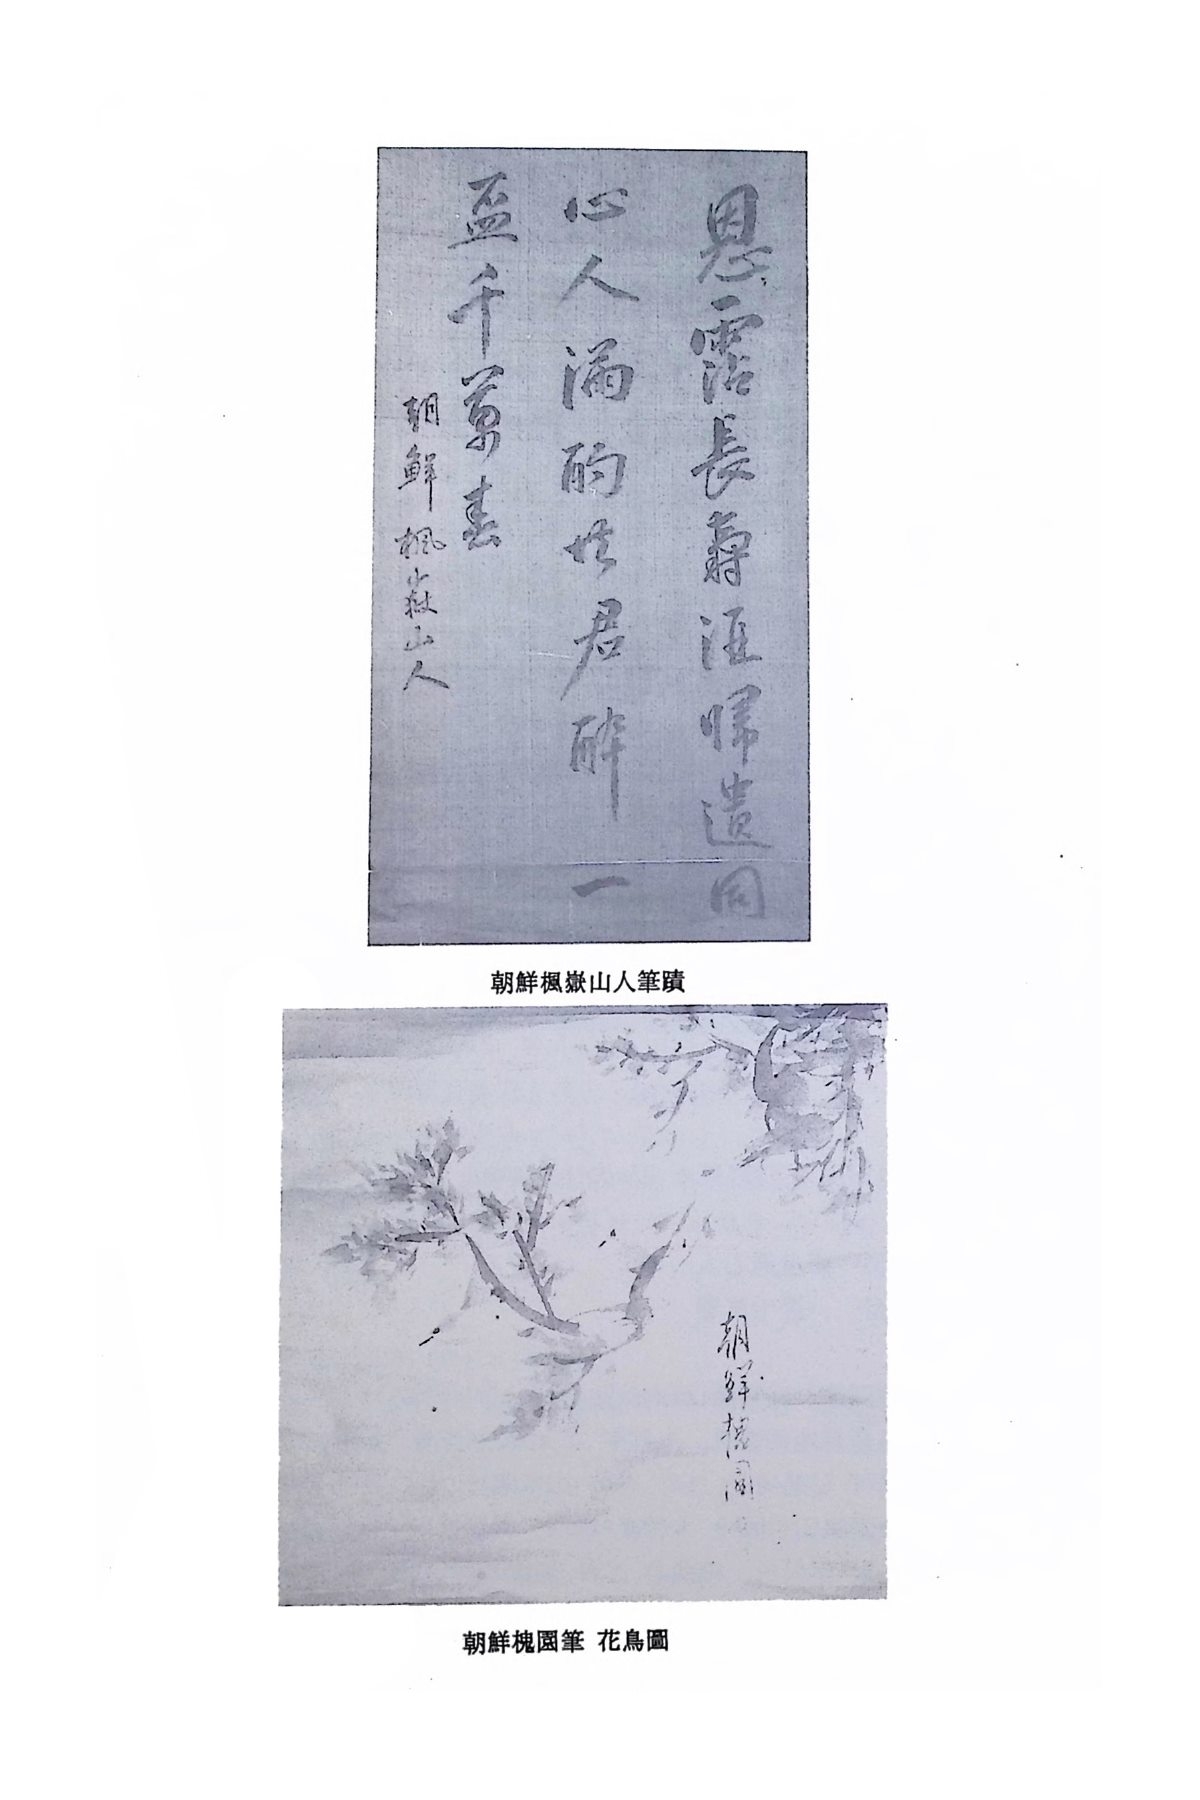 恩霑長壽酒歸遺同
心人滿酌共君醉一
盃千萬春
朝鮮楓嶽山人
朝鮮楓嶽山人筆蹟
朝鮮槐園
朝鮮槐園筆 花鳥圖